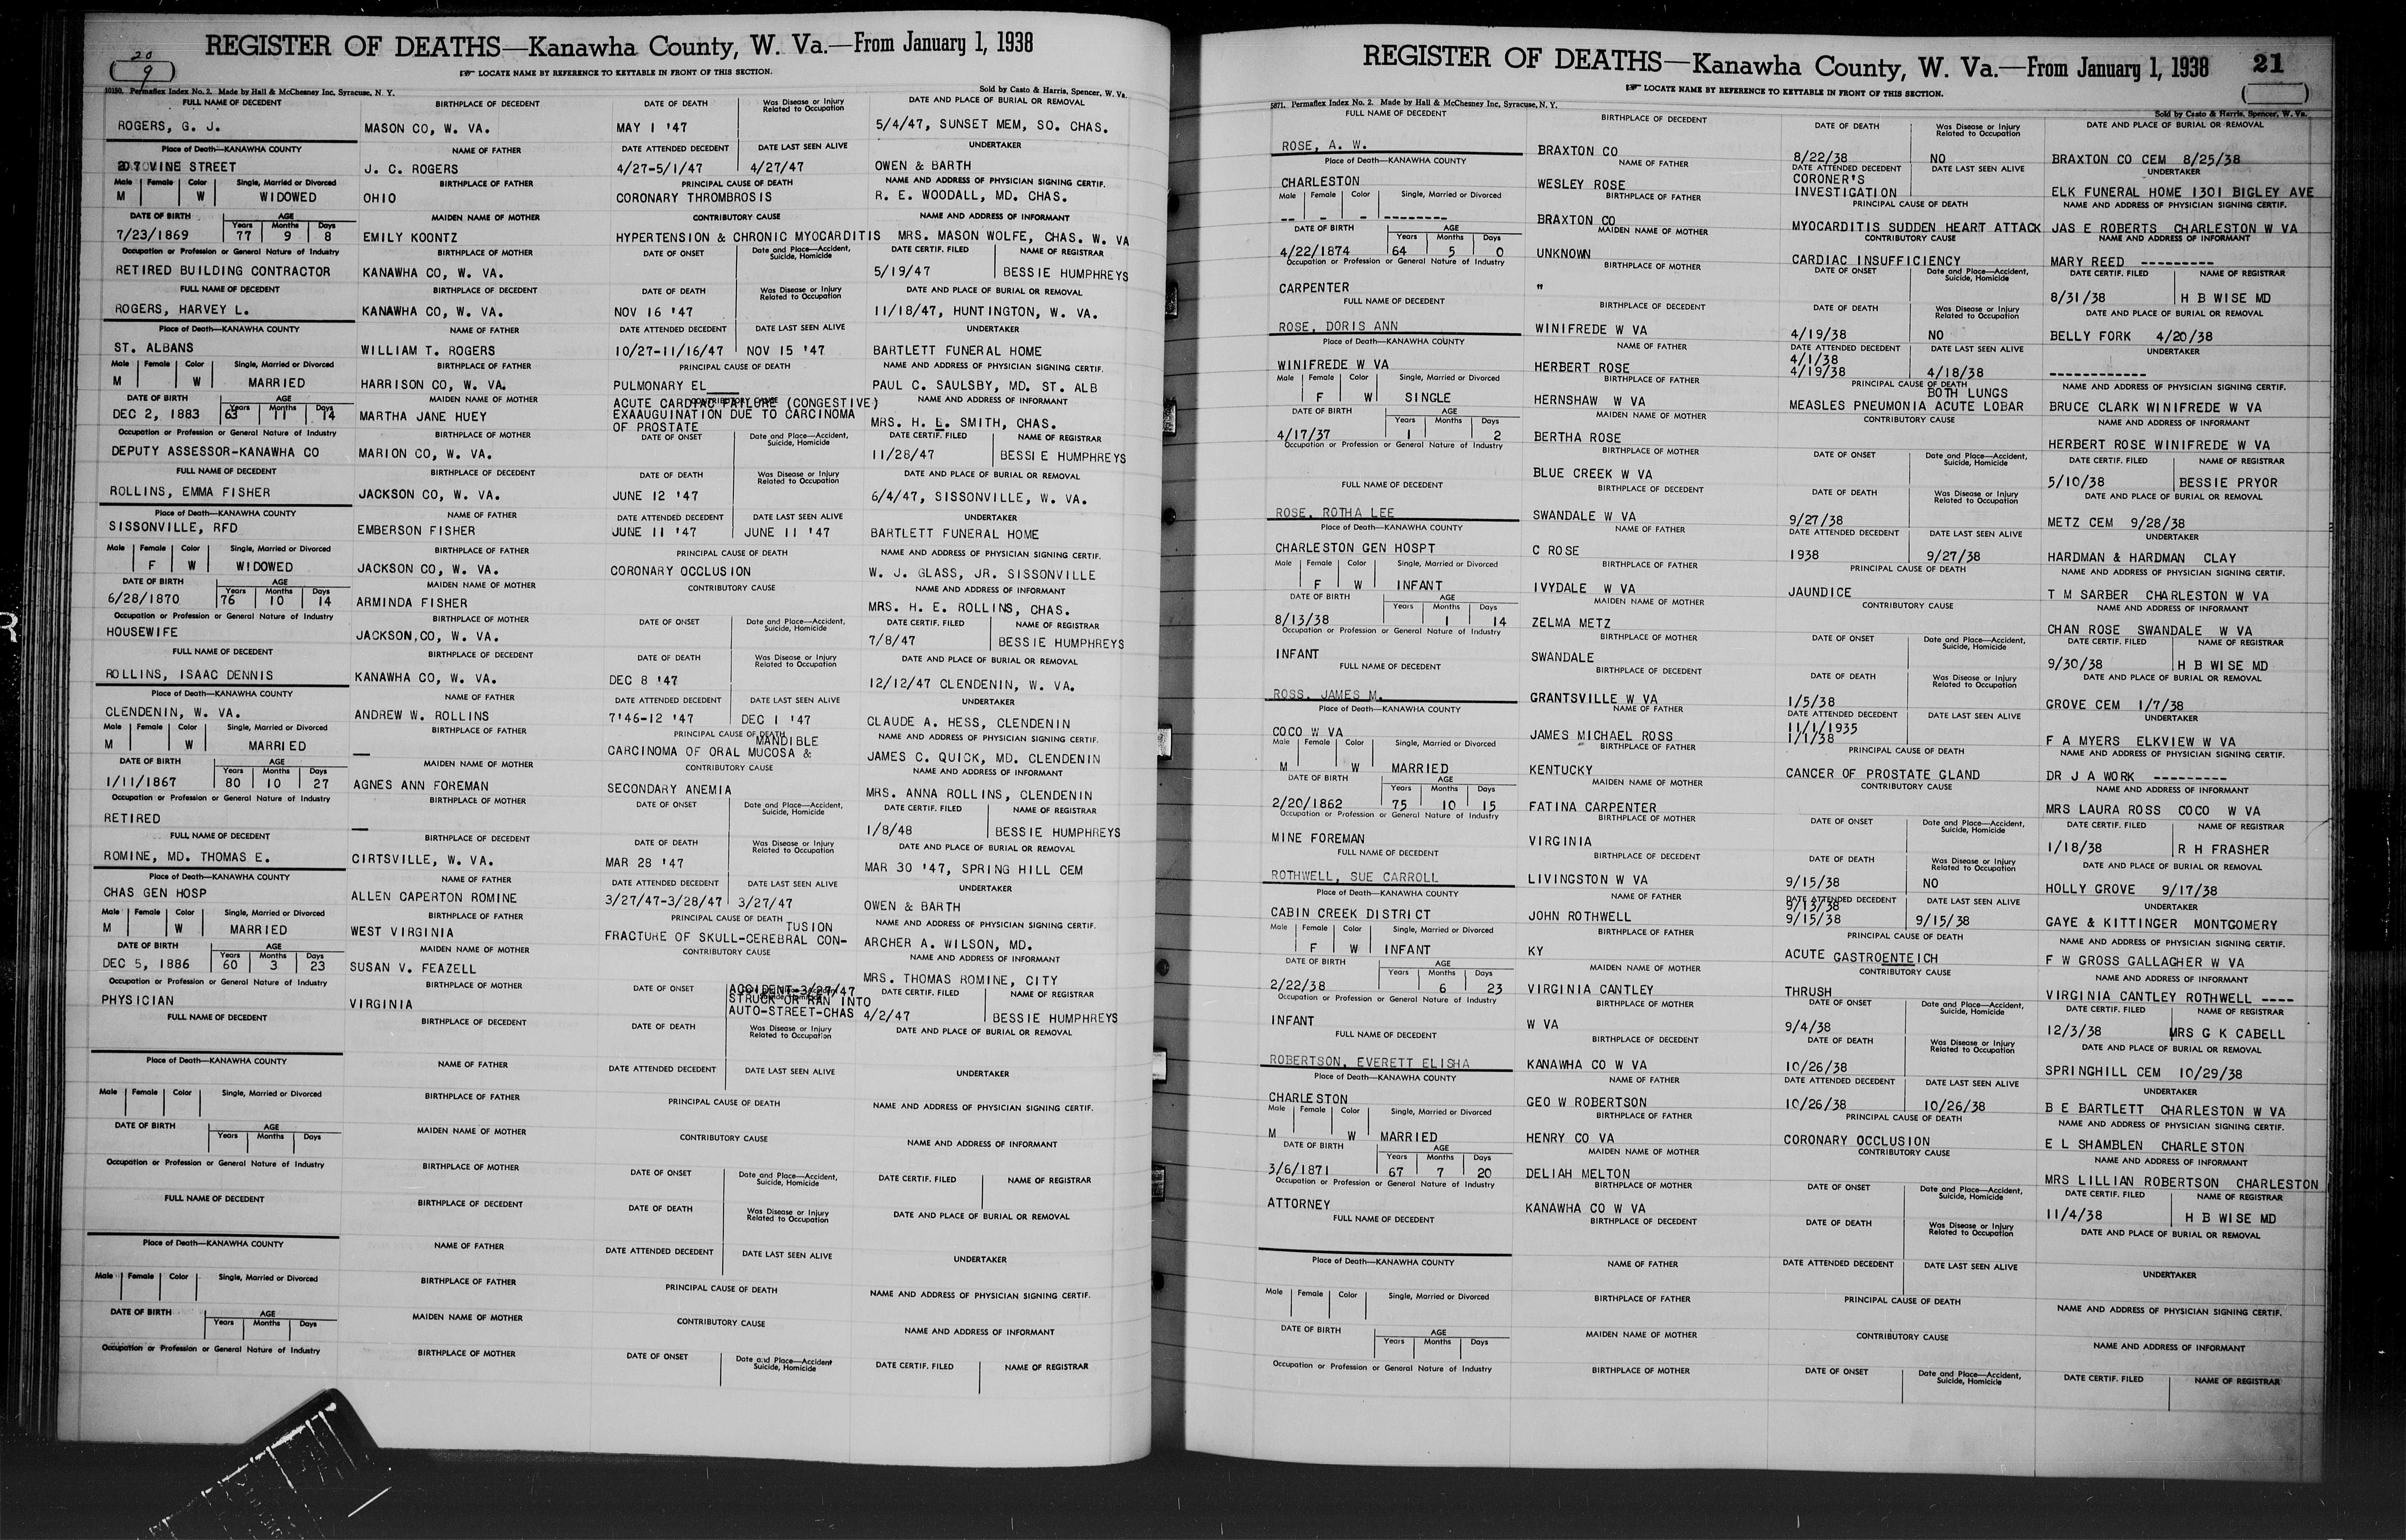 20
9
REGISTER OF DEATHS—Kanawha County, W. Va.—From January 1, 1938
LOCATE NAME BY REFERENCE TO KEYTABLE IN FRONT OF THIS SECTION.
10150. Permaflex Index No. 2. Made by Hall & McChesney Inc. Syracuse, N. Y. Sold by Casto & Harris, Spencer, W. Va.
FULL NAME OF DECEDENT BIRTHPLACE OF DECEDENT DATE OF DEATH Was Disease or Injury Related to Occupation DATE AND PLACE OF BURIAL OR REMOVAL
ROGERS, G. J. MASON CO, W. VA. MAY 1 '47 5/4/47, SUNSET MEM, SO. CHAS.
Place of Death—KANAWHA COUNTY NAME OF FATHER DATE ATTENDED DECEDENT DATE LAST SEEN ALIVE UNDERTAKER
VINE STREET J. C. ROGERS 4/27-5/1/47 4/27/47 OWEN & BARTH
Male Female Color Single, Married or Divorced BIRTHPLACE OF FATHER PRINCIPAL CAUSE OF DEATH NAME AND ADDRESS OF PHYSICIAN SIGNING CERTIF.
M W WIDOWED OHIO CORONARY THROMBROSIS R. E. WOODALL, MD. CHAS.
DATE OF BIRTH AGE Years Months Days MAIDEN NAME OF MOTHER CONTRIBUTORY CAUSE NAME AND ADDRESS OF INFORMANT
7/23/1869 77 9 8 EMILY KOONTZ HYPERTENSION & CHRONIC MYOCARDITIS MRS. MASON WOLFE, CHAS. W. VA
Occupation or Profession or General Nature of Industry BIRTHPLACE OF MOTHER DATE OF ONSET Date and Place—Accident, Suicide, Homicide DATE CERTIF. FILED NAME OF REGISTRAR
RETIRED BUILDING CONTRACTOR KANAWHA CO, W. VA. 5/19/47 BESSIE HUMPHREYS
FULL NAME OF DECEDENT BIRTHPLACE OF DECEDENT DATE OF DEATH Was Disease or Injury Related to Occupation DATE AND PLACE OF BURIAL OR REMOVAL
ROGERS, HARVEY L. KANAWHA CO, W. VA. NOV 16 '47 11/18/47, HUNTINGTON, W. VA.
Place of Death—KANAWHA COUNTY NAME OF FATHER DATE ATTENDED DECEDENT DATE LAST SEEN ALIVE UNDERTAKER
ST. ALBANS WILLIAM T. ROGERS 10/27-11/16/47 NOV 15 '47 BARTLETT FUNERAL HOME
Male Female Color Single, Married or Divorced BIRTHPLACE OF FATHER PRINCIPAL CAUSE OF DEATH NAME AND ADDRESS OF PHYSICIAN SIGNING CERTIF.
M W MARRIED HARRISON CO, W. VA. PULMONARY EL___ PAUL C. SAULSBY, MD. ST. ALB
DATE OF BIRTH AGE Years Months Days MAIDEN NAME OF MOTHER CONTRIBUTORY CAUSE NAME AND ADDRESS OF INFORMANT
DEC 2, 1883 63 11 14 MARTHA JANE HUEY ACUTE CARDIAC FAILURE (CONGESTIVE) EXAAUGUINATION DUE TO CARCINOMA OF PROSTATE MRS. H. L. SMITH, CHAS.
Occupation or Profession or General Nature of Industry BIRTHPLACE OF MOTHER DATE OF ONSET Date and Place—Accident, Suicide, Homicide DATE CERTIF. FILED NAME OF REGISTRAR
DEPUTY ASSESSOR-KANAWHA CO MARION CO, W. VA. 11/28/47 BESSIE HUMPHREYS
FULL NAME OF DECEDENT BIRTHPLACE OF DECEDENT DATE OF DEATH Was Disease or Injury Related to Occupation DATE AND PLACE OF BURIAL OR REMOVAL
ROLLINS, EMMA FISHER JACKSON CO, W. VA. JUNE 12 '47 6/4/47, SISSONVILLE, W. VA.
Place of Death—KANAWHA COUNTY NAME OF FATHER DATE ATTENDED DECEDENT DATE LAST SEEN ALIVE UNDERTAKER
SISSONVILLE, RFD EMBERSON FISHER JUNE 11 '47 JUNE 11 '47 BARTLETT FUNERAL HOME
Male Female Color Single, Married or Divorced BIRTHPLACE OF FATHER PRINCIPAL CAUSE OF DEATH NAME AND ADDRESS OF PHYSICIAN SIGNING CERTIF.
F W WIDOWED JACKSON CO, W. VA. CORONARY OCCLUSION W. J. GLASS, JR. SISSONVILLE
DATE OF BIRTH AGE Years Months Days MAIDEN NAME OF MOTHER CONTRIBUTORY CAUSE NAME AND ADDRESS OF INFORMANT
6/28/1870 76 10 14 ARMINDA FISHER MRS. H. E. ROLLINS, CHAS.
Occupation or Profession or General Nature of Industry BIRTHPLACE OF MOTHER DATE OF ONSET Date and Place—Accident, Suicide, Homicide DATE CERTIF. FILED NAME OF REGISTRAR
HOUSEWIFE JACKSON,CO, W. VA. 7/8/47 BESSIE HUMPHREYS
FULL NAME OF DECEDENT BIRTHPLACE OF DECEDENT DATE OF DEATH Was Disease or Injury Related to Occupation DATE AND PLACE OF BURIAL OR REMOVAL
ROLLINS, ISAAC DENNIS KANAWHA CO, W. VA. DEC 8 '47 12/12/47 CLENDENIN, W. VA.
Place of Death—KANAWHA COUNTY NAME OF FATHER DATE ATTENDED DECEDENT DATE LAST SEEN ALIVE UNDERTAKER
CLENDENIN, W. VA. ANDREW W. ROLLINS 7'46-12 '47 DEC 1 '47 CLAUDE A. HESS, CLENDENIN
Male Female Color Single, Married or Divorced BIRTHPLACE OF FATHER PRINCIPAL CAUSE OF DEATH NAME AND ADDRESS OF PHYSICIAN SIGNING CERTIF.
M W MARRIED — CARCINOMA OF ORAL MUCOSA & MANDIBLE JAMES C. QUICK, MD. CLENDENIN
DATE OF BIRTH AGE Years Months Days MAIDEN NAME OF MOTHER CONTRIBUTORY CAUSE NAME AND ADDRESS OF INFORMANT
1/11/1867 80 10 27 AGNES ANN FOREMAN SECONDARY ANEMIA MRS. ANNA ROLLINS, CLENDENIN
Occupation or Profession or General Nature of Industry BIRTHPLACE OF MOTHER DATE OF ONSET Date and Place—Accident, Suicide, Homicide DATE CERTIF. FILED NAME OF REGISTRAR
RETIRED — 1/8/48 BESSIE HUMPHREYS
FULL NAME OF DECEDENT BIRTHPLACE OF DECEDENT DATE OF DEATH Was Disease or Injury Related to Occupation DATE AND PLACE OF BURIAL OR REMOVAL
ROMINE, MD. THOMAS E. CIRTSVILLE, W. VA. MAR 28 '47 MAR 30 '47, SPRING HILL CEM
Place of Death—KANAWHA COUNTY NAME OF FATHER DATE ATTENDED DECEDENT DATE LAST SEEN ALIVE UNDERTAKER
CHAS GEN HOSP ALLEN CAPERTON ROMINE 3/27/47-3/28/47 3/27/47 OWEN & BARTH
Male Female Color Single, Married or Divorced BIRTHPLACE OF FATHER PRINCIPAL CAUSE OF DEATH NAME AND ADDRESS OF PHYSICIAN SIGNING CERTIF.
M W MARRIED WEST VIRGINIA FRACTURE OF SKULL-CEREBRAL CON-TUSION ARCHER A. WILSON, MD.
DATE OF BIRTH AGE Years Months Days MAIDEN NAME OF MOTHER CONTRIBUTORY CAUSE NAME AND ADDRESS OF INFORMANT
DEC 5, 1886 60 3 23 SUSAN V. FEAZELL MRS. THOMAS ROMINE, CITY
Occupation or Profession or General Nature of Industry BIRTHPLACE OF MOTHER DATE OF ONSET DATE CERTIF. FILED NAME OF REGISTRAR
PHYSICIAN VIRGINIA ACCIDENT-3/27/47 STRUCK OR RAN INTO AUTO-STREET-CHAS 4/2/47 BESSIE HUMPHREYS
FULL NAME OF DECEDENT BIRTHPLACE OF DECEDENT DATE OF DEATH Was Disease or Injury Related to Occupation DATE AND PLACE OF BURIAL OR REMOVAL
Place of Death—KANAWHA COUNTY NAME OF FATHER DATE ATTENDED DECEDENT DATE LAST SEEN ALIVE UNDERTAKER
Male Female Color Single, Married or Divorced BIRTHPLACE OF FATHER PRINCIPAL CAUSE OF DEATH NAME AND ADDRESS OF PHYSICIAN SIGNING CERTIF.
DATE OF BIRTH AGE Years Months Days MAIDEN NAME OF MOTHER CONTRIBUTORY CAUSE NAME AND ADDRESS OF INFORMANT
Occupation or Profession or General Nature of Industry BIRTHPLACE OF MOTHER DATE OF ONSET Date and Place—Accident, Suicide, Homicide DATE CERTIF. FILED NAME OF REGISTRAR
FULL NAME OF DECEDENT BIRTHPLACE OF DECEDENT DATE OF DEATH Was Disease or Injury Related to Occupation DATE AND PLACE OF BURIAL OR REMOVAL
Place of Death—KANAWHA COUNTY NAME OF FATHER DATE ATTENDED DECEDENT DATE LAST SEEN ALIVE UNDERTAKER
Male Female Color Single, Married or Divorced BIRTHPLACE OF FATHER PRINCIPAL CAUSE OF DEATH NAME AND ADDRESS OF PHYSICIAN SIGNING CERTIF.
DATE OF BIRTH AGE Years Months Days MAIDEN NAME OF MOTHER CONTRIBUTORY CAUSE NAME AND ADDRESS OF INFORMANT
Occupation or Profession or General Nature of Industry BIRTHPLACE OF MOTHER DATE OF ONSET Date and Place—Accident Suicide, Homicide DATE CERTIF. FILED NAME OF REGISTRAR
REGISTER OF DEATHS—Kanawha County, W. Va.—From January 1, 1938 21
LOCATE NAME BY REFERENCE TO KEYTABLE IN FRONT OF THIS SECTION.
5871. Permaflex Index No. 2. Made by Hall & McChesney Inc, Syracuse, N. Y. Sold by Casto & Harris, Spencer, W. Va.
FULL NAME OF DECEDENT BIRTHPLACE OF DECEDENT DATE OF DEATH Was Disease or Injury Related to Occupation DATE AND PLACE OF BURIAL OR REMOVAL
ROSE, A. W. BRAXTON CO 8/22/38 NO BRAXTON CO CEM 8/25/38
Place of Death—KANAWHA COUNTY NAME OF FATHER DATE ATTENDED DECEDENT DATE LAST SEEN ALIVE UNDERTAKER
CHARLESTON WESLEY ROSE CORONER'S INVESTIGATION ELK FUNERAL HOME 1301 BIGLEY AVE
Male Female Color Single, Married or Divorced BIRTHPLACE OF FATHER PRINCIPAL CAUSE OF DEATH NAME AND ADDRESS OF PHYSICIAN SIGNING CERTIF.
-- - - -------- BRAXTON CO MYOCARDITIS SUDDEN HEART ATTACK JAS E ROBERTS CHARLESTON W VA
DATE OF BIRTH AGE Years Months Days MAIDEN NAME OF MOTHER CONTRIBUTORY CAUSE NAME AND ADDRESS OF INFORMANT
4/22/1874 64 5 0 UNKNOWN CARDIAC INSUFFICIENCY MARY REED ---------
Occupation or Profession or General Nature of Industry BIRTHPLACE OF MOTHER DATE OF ONSET Date and Place—Accident, Suicide, Homicide DATE CERTIF. FILED NAME OF REGISTRAR
CARPENTER " 8/31/38 H B WISE MD
FULL NAME OF DECEDENT BIRTHPLACE OF DECEDENT DATE OF DEATH Was Disease or Injury Related to Occupation DATE AND PLACE OF BURIAL OR REMOVAL
ROSE, DORIS ANN WINIFREDE W VA 4/19/38 NO BELLY FORK 4/20/38
Place of Death—KANAWHA COUNTY NAME OF FATHER DATE ATTENDED DECEDENT DATE LAST SEEN ALIVE UNDERTAKER
WINIFREDE W VA HERBERT ROSE 4/1/38 4/19/38 4/18/38 ------------
Male Female Color Single, Married or Divorced BIRTHPLACE OF FATHER PRINCIPAL CAUSE OF DEATH NAME AND ADDRESS OF PHYSICIAN SIGNING CERTIF.
F W SINGLE HERNSHAW W VA MEASLES PNEUMONIA ACUTE LOBAR BOTH LUNGS BRUCE CLARK WINIFREDE W VA
DATE OF BIRTH AGE Years Months Days MAIDEN NAME OF MOTHER CONTRIBUTORY CAUSE NAME AND ADDRESS OF INFORMANT
4/17/37 1 2 BERTHA ROSE HERBERT ROSE WINIFREDE W VA
Occupation or Profession or General Nature of Industry BIRTHPLACE OF MOTHER DATE OF ONSET Date and Place—Accident, Suicide, Homicide DATE CERTIF. FILED NAME OF REGISTRAR
BLUE CREEK W VA 5/10/38 BESSIE PRYOR
FULL NAME OF DECEDENT BIRTHPLACE OF DECEDENT DATE OF DEATH Was Disease or Injury Related to Occupation DATE AND PLACE OF BURIAL OR REMOVAL
ROSE, ROTHA LEE SWANDALE W VA 9/27/38 METZ CEM 9/28/38
Place of Death—KANAWHA COUNTY NAME OF FATHER DATE ATTENDED DECEDENT DATE LAST SEEN ALIVE UNDERTAKER
CHARLESTON GEN HOSPT C ROSE 1938 9/27/38 HARDMAN & HARDMAN CLAY
Male Female Color Single, Married or Divorced BIRTHPLACE OF FATHER PRINCIPAL CAUSE OF DEATH NAME AND ADDRESS OF PHYSICIAN SIGNING CERTIF.
F W INFANT IVYDALE W VA JAUNDICE T M SARBER CHARLESTON W VA
DATE OF BIRTH AGE Years Months Days MAIDEN NAME OF MOTHER CONTRIBUTORY CAUSE NAME AND ADDRESS OF INFORMANT
8/13/38 1 14 ZELMA METZ CHAN ROSE SWANDALE W VA
Occupation or Profession or General Nature of Industry BIRTHPLACE OF MOTHER DATE OF ONSET Date and Place—Accident, Suicide, Homicide DATE CERTIF. FILED NAME OF REGISTRAR
INFANT SWANDALE 9/30/38 H B WISE MD
FULL NAME OF DECEDENT BIRTHPLACE OF DECEDENT DATE OF DEATH Was Disease or Injury Related to Occupation DATE AND PLACE OF BURIAL OR REMOVAL
ROSS, JAMES M. GRANTSVILLE W VA 1/5/38 GROVE CEM 1/7/38
Place of Death—KANAWHA COUNTY NAME OF FATHER DATE ATTENDED DECEDENT DATE LAST SEEN ALIVE UNDERTAKER
COCO W VA JAMES MICHAEL ROSS 11/1/1935 1/1/38 F A MYERS ELKVIEW W VA
Male Female Color Single, Married or Divorced BIRTHPLACE OF FATHER PRINCIPAL CAUSE OF DEATH NAME AND ADDRESS OF PHYSICIAN SIGNING CERTIF.
M W MARRIED KENTUCKY CANCER OF PROSTATE GLAND DR J A WORK ---------
DATE OF BIRTH AGE Years Months Days MAIDEN NAME OF MOTHER CONTRIBUTORY CAUSE NAME AND ADDRESS OF INFORMANT
2/20/1862 75 10 15 FATINA CARPENTER MRS LAURA ROSS COCO W VA
Occupation or Profession or General Nature of Industry BIRTHPLACE OF MOTHER DATE OF ONSET Date and Place—Accident, Suicide, Homicide DATE CERTIF. FILED NAME OF REGISTRAR
MINE FOREMAN VIRGINIA 1/18/38 R H FRASHER
FULL NAME OF DECEDENT BIRTHPLACE OF DECEDENT DATE OF DEATH Was Disease or Injury Related to Occupation DATE AND PLACE OF BURIAL OR REMOVAL
ROTHWELL, SUE CARROLL LIVINGSTON W VA 9/15/38 NO HOLLY GROVE 9/17/38
Place of Death—KANAWHA COUNTY NAME OF FATHER DATE ATTENDED DECEDENT DATE LAST SEEN ALIVE UNDERTAKER
CABIN CREEK DISTRICT JOHN ROTHWELL 9/13/38 9/15/38 9/15/38 GAYE & KITTINGER MONTGOMERY
Male Female Color Single, Married or Divorced BIRTHPLACE OF FATHER PRINCIPAL CAUSE OF DEATH NAME AND ADDRESS OF PHYSICIAN SIGNING CERTIF.
F W INFANT KY ACUTE GASTROENTEICH F W GROSS GALLAGHER W VA
DATE OF BIRTH AGE Years Months Days MAIDEN NAME OF MOTHER CONTRIBUTORY CAUSE NAME AND ADDRESS OF INFORMANT
2/22/38 6 23 VIRGINIA CANTLEY THRUSH VIRGINIA CANTLEY ROTHWELL ----
Occupation or Profession or General Nature of Industry BIRTHPLACE OF MOTHER DATE OF ONSET Date and Place—Accident, Suicide, Homicide DATE CERTIF. FILED NAME OF REGISTRAR
INFANT W VA 9/4/38 12/3/38 MRS G K CABELL
FULL NAME OF DECEDENT BIRTHPLACE OF DECEDENT DATE OF DEATH Was Disease or Injury Related to Occupation DATE AND PLACE OF BURIAL OR REMOVAL
ROBERTSON, EVERETT ELISHA KANAWHA CO W VA 10/26/38 SPRINGHILL CEM 10/29/38
Place of Death—KANAWHA COUNTY NAME OF FATHER DATE ATTENDED DECEDENT DATE LAST SEEN ALIVE UNDERTAKER
CHARLESTON GEO W ROBERTSON 10/26/38 10/26/38 B E BARTLETT CHARLESTON W VA
Male Female Color Single, Married or Divorced BIRTHPLACE OF FATHER PRINCIPAL CAUSE OF DEATH NAME AND ADDRESS OF PHYSICIAN SIGNING CERTIF.
M W MARRIED HENRY CO VA CORONARY OCCLUSION E L SHAMBLEN CHARLESTON
DATE OF BIRTH AGE Years Months Days MAIDEN NAME OF MOTHER CONTRIBUTORY CAUSE NAME AND ADDRESS OF INFORMANT
3/6/1871 67 7 20 DELIAH MELTON MRS LILLIAN ROBERTSON CHARLESTON
Occupation or Profession or General Nature of Industry BIRTHPLACE OF MOTHER DATE OF ONSET Date and Place—Accident, Suicide, Homicide DATE CERTIF. FILED NAME OF REGISTRAR
ATTORNEY KANAWHA CO W VA 11/4/38 H B WISE MD
FULL NAME OF DECEDENT BIRTHPLACE OF DECEDENT DATE OF DEATH Was Disease or Injury Related to Occupation DATE AND PLACE OF BURIAL OR REMOVAL
Place of Death—KANAWHA COUNTY NAME OF FATHER DATE ATTENDED DECEDENT DATE LAST SEEN ALIVE UNDERTAKER
Male Female Color Single, Married or Divorced BIRTHPLACE OF FATHER PRINCIPAL CAUSE OF DEATH NAME AND ADDRESS OF PHYSICIAN SIGNING CERTIF.
DATE OF BIRTH AGE Years Months Days MAIDEN NAME OF MOTHER CONTRIBUTORY CAUSE NAME AND ADDRESS OF INFORMANT
Occupation or Profession or General Nature of Industry BIRTHPLACE OF MOTHER DATE OF ONSET Date and Place—Accident, Suicide, Homicide DATE CERTIF. FILED NAME OF REGISTRAR